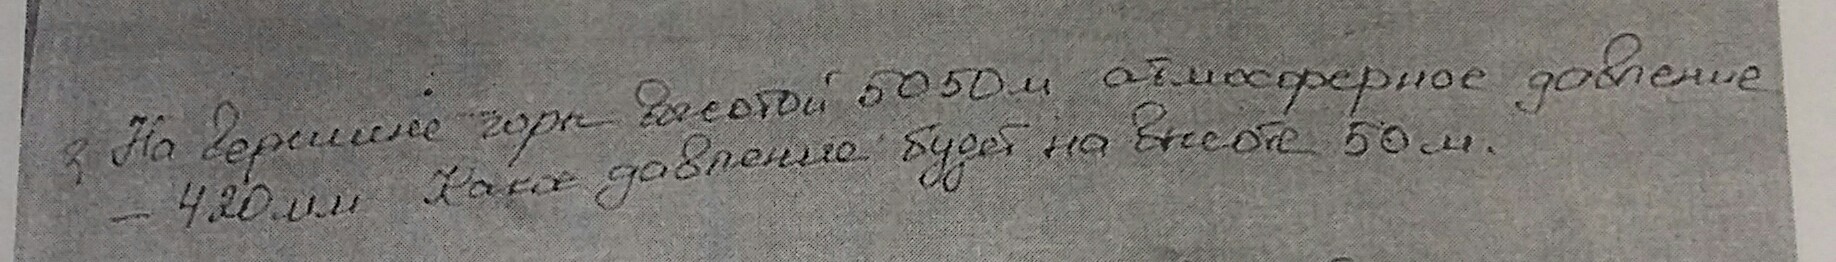 3. На вершине горы высотой 5050м атмосферное давление
– 420мм Какое давление будет на высоте 50м.